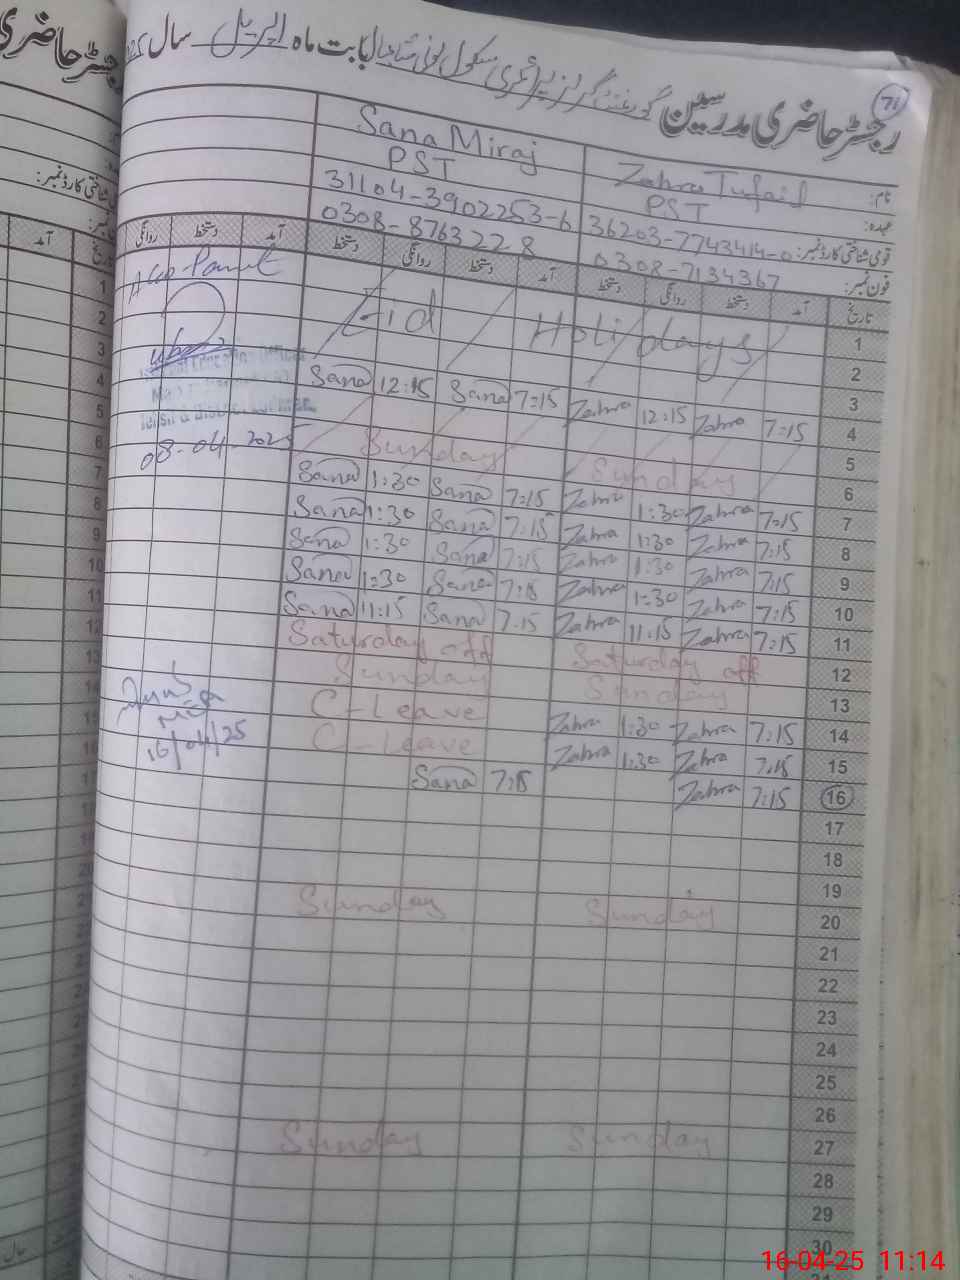 76
رجسٹر حاضری مدرسین گورنمنٹ گرلز پرائمری سکول بابت ماہ اپریل سال
نام: Zahra Tufail Sana Miraj
عہدہ: PST PST
قومی شناختی کارڈ نمبر: 36203-7743414-0 31104-3902253-6
فون نمبر: 0308-7134367 0308-8763228
تاریخ آمد دستخط روانگی دستخط آمد دستخط روانگی دستخط آمد دستخط روانگی
1 Eid Holidays
2
3
4 7:15 Zahra 12:15 Zahra 7:15 Sana 12:15 Sana
5
6 Sunday Sunday
7 7:15 Zahra 1:30 Zahra 7:15 Sana 1:30 Sana
8 7:15 Zahra 1:30 Zahra 7:15 Sana 1:30 Sana
9 7:15 Zahra 1:30 Zahra 7:15 Sana 1:30 Sana
10 7:15 Zahra 1:30 Zahra 7:15 Sana 1:30 Sana
11 7:15 Zahra 11:15 Zahra 7:15 Sana 11:15 Sana
12 Saturday off Saturday off
13 Sunday Sunday
14 7:15 Zahra 1:30 Zahra C-Leave
15 7:15 Zahra 1:30 Zahra C-Leave
16 7:15 Zahra 7:15 Sana
17
18
19
20 Sunday Sunday
21
22
23
24
25
26
27 Sunday Sunday
28
29
30
08-04-2025
16/04/25
رجسٹر حاضری
شناختی کارڈ نمبر:
تاریخ
آمد
16-04-25 11:14